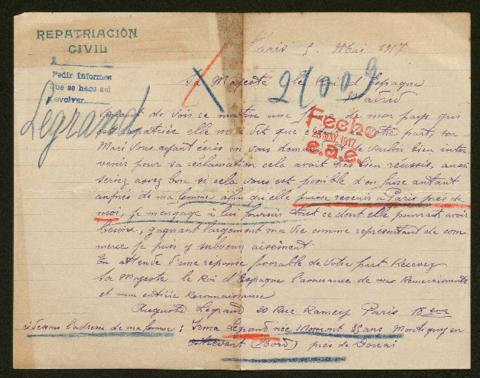 REPATRIACIÓN
CIVIL
Pedir informes
que se hace así
devolver
Legrand
Paris 5 Mai 1917
Sa Majesté le Roi d'Espagne
Madrid
2/009
Fecho
25 MAY. 1917
e.a.e.
de voir ce matin une de mon pays qui
elle m'a dit que c'est votre part, son
Mari vous ayant écrit en vous de vouloir bien inter
venir pour sa réclamation cela avait très bien réussi, aussi
seriez assez bon si cela vous est possible d'en faire autant
auprès de ma femme afin qu'elle puisse revenir à Paris près de
moi, je m'engage à lui fournir tout ce dont elle pourrait avoir
besoin, gagnant largement ma vie comme représentant de com
merce je puis y subvenir aisément
En attente d'une réponse favorable de votre part Recevez
Sa Majesté le Roi d'Espagne l'assurance de mes Remerciements
et mon entière Reconnaissance
Auguste Legrand 20 Rue Ramey Paris 18eme
ci-dessous l'adresse de ma femme : Irma Legrand née Momont 25 ans Montigny en
Ostrevent (Nord) près de Douai